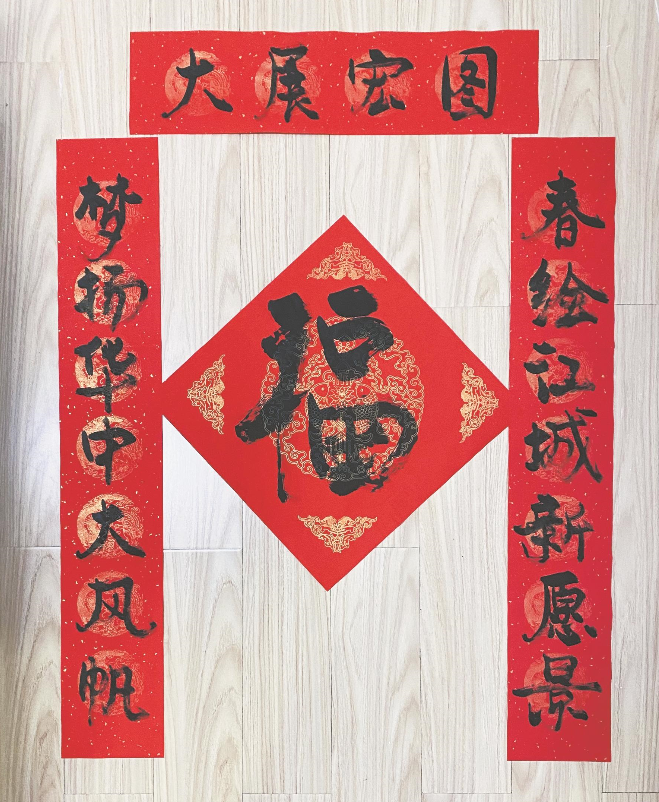 大展宏图
春绘江城新愿景
梦扬华中大风帆
福